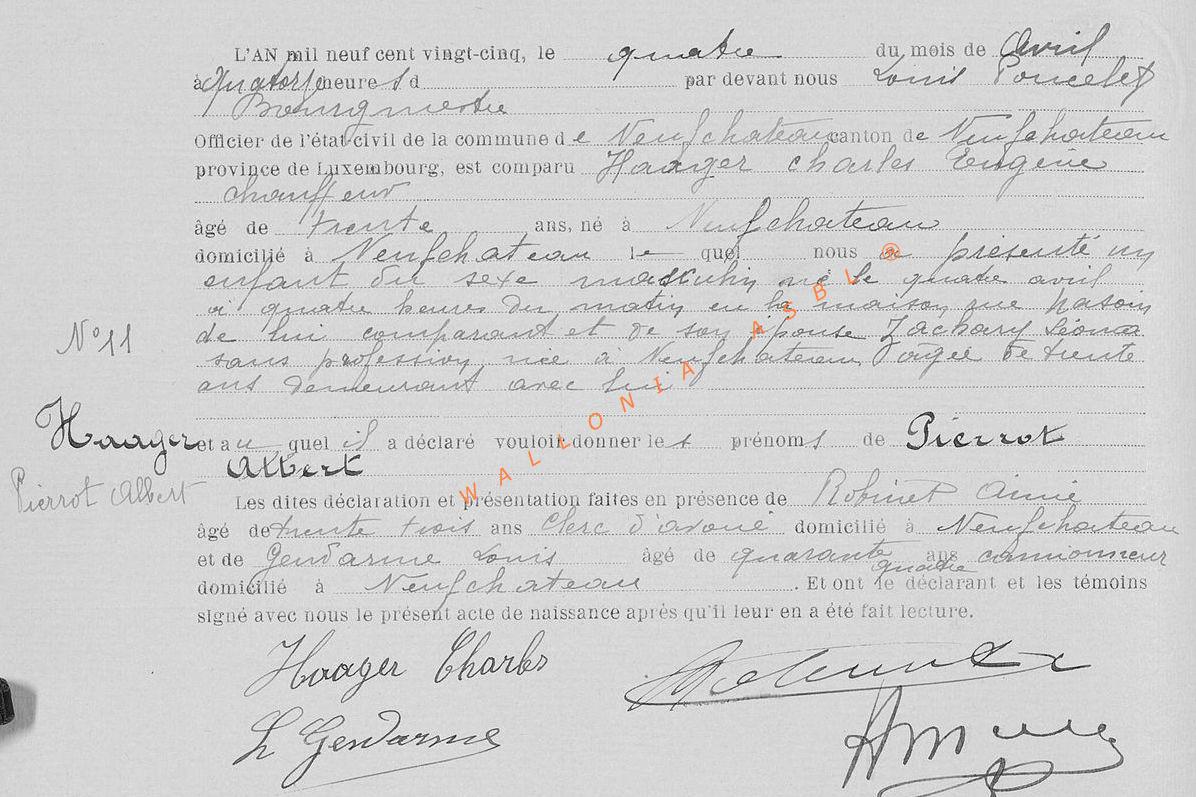 L'AN mil neuf cent vingt-cinq, le quatre du mois de Avril
à quatorze heures d par devant nous Louis Poncelet
Bourgmestre
Officier de l'état-civil de la commune de Neufchateau canton de Neufchateau
province de Luxembourg, est comparu Haager Charles Eugène
chauffeur
âgé de trente ans, né à Neufchateau
domicilié à Neufchateau le quel nous a présenté un
enfant du sexe masculin né le quatre avril
à quatre heures du matin en la maison rue
de lui comparant et de son épouse Zachary Léona
sans profession née à Neufchateau, âgée de trente
ans demeurant avec lui
N° 11
Haager
Pierrot Albert
et au quel il a déclaré vouloir donner les prénoms de Pierrot
Albert
Les dites déclaration et présentation faites en présence de Robinet Aimé
âgé de trente trois ans Clerc d'avoué domicilié à Neufchateau
et de Gendarme Louis âgé de quarante quatre ans camionneur
domicilié à Neufchateau. Et ont le déclarant et les témoins
signé avec nous le présent acte de naissance après qu'il leur en a été fait lecture.
Haager Charles
L Gendarme
WALLONIA ASBL ®